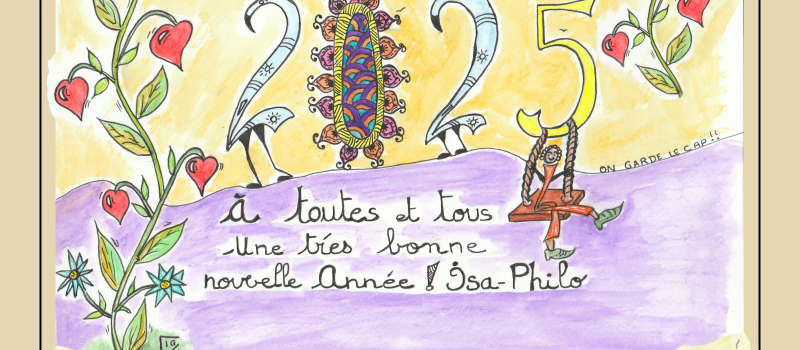 2025
ON GARDE LE CAP !!
à toutes et tous
Une trés bonne
nouvelle Année ! Isa-Philo
IG